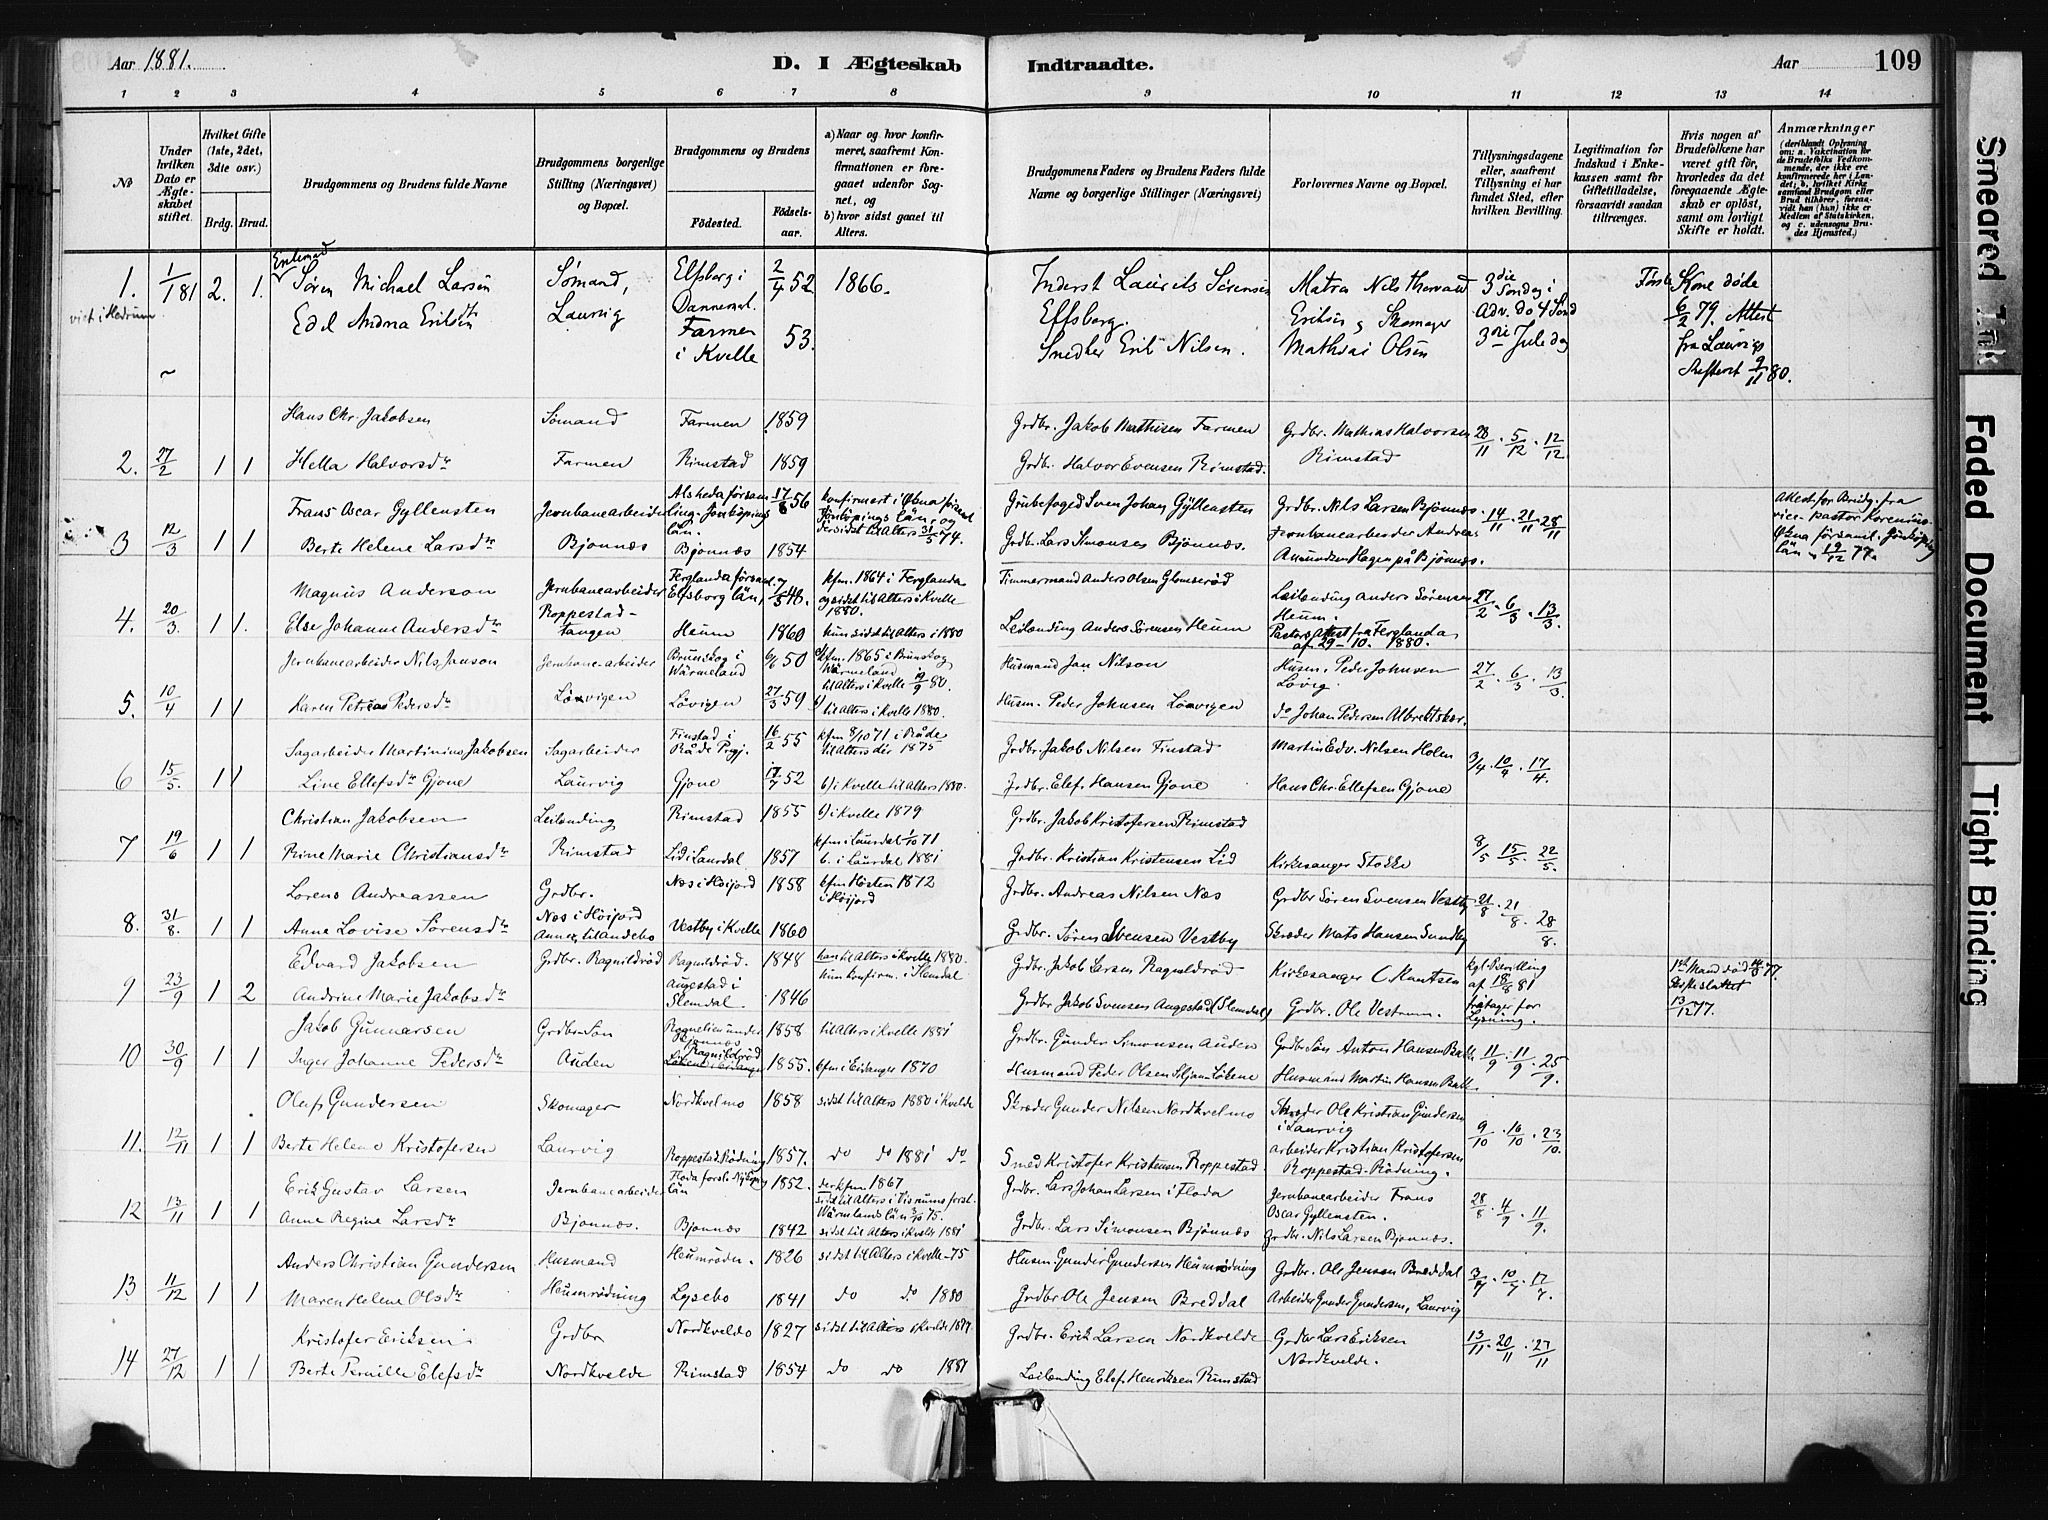 Aar 1881.
D. I Ægteskab Indtraadte.
Aar
109
1 2 3 4 5 6 7 8 9 10 11 12 13 14
No
Under hvilken Dato er Ægteskabet stiftet.
Hvilket Gifte (1ste, 2det, 3dte osv.)
Brdg. Brud.
Brudgommens og Brudens fulde Navne
Brudgommens borgerlige Stilling (Næringsvei) og Bopæl.
Brudgommens og Brudens
Födested. Födselsaar.
a) Naar og hvor konfirmeret, saafremt Konfirmationen er foregaaet udenfor Sognet, og
b) hvor sidst gaaet til Alters.
Brudgommens Faders og Brudens Faders fulde Navne og borgerlige Stillinger (Næringsvei)
Forlovernes Navne og Bopæl.
Tillysningsdagene eller, saafremt Tillysning ei har fundet Sted, efter hvilken Bevilling.
Legitimation for Indskud i Enkekassen samt for Giftetilladelse, forsaavidt saadan tiltrænges.
Hvis nogen af Brudefolkene har været gift för, hvorledes da det foregaaende Ægteskab er oplöst, samt om lovligt Skifte er holdt.
Anmærkninger (deriblandt Oplysning om: a. Vakcination for de Brudefolks Vedkommende, der ikke ere konfirmerede her i Landet; b. hvilket Kirkesamfund Brudgom eller Brud tilhörer, forsaavidt han (hun) ikke er Medlem af Statskirken, og c. udensogns Brudes Hjemsted.)
1. 1/1 81 2. 1. Enkemand Søren Michael Larsen Sømand, Elfsborg i Dannemark 2/4 52 1866. Inderst Laurits Sørensen Elfsborg. Matros Nils Thorvald Eriksen og Skomager Mathias Olsen 3die Søndag i Adv. do 4 Sønd 3die Juledag Første Kone døde 6/2 79. Attest fra Laurvigs Skifteret 9/11 80.
viet i Hedrum
Edel Andrea Eriksen Laurvig Farmen i Kvelle 53. Snedker Erik Nilsen.
Hans Chr. Jakobsen Sømand Farmen 1859 Grdbr. Jakob Mathisen Farmen Grdbr. Mathias Halvorsen Rimstad 28/11 . 5/12 . 12/12
2. 27/2 1 1 Hella Halvorsdtr Farmen Rimstad 1859 Grdbr. Halvor Evensen Rimstad.
Frans Oscar Gyllensten Jernbanearbeider Alsheda församling Jönköpings län. 17/8 56 konfirmert i Økna församl Jönköpings län, og der sidst til Alters 31/5 74. Grubefoged Sven Johan Gyllensten Grdbr. Nils Larsen Bjønnes 14/11 . 21/11 . 28/11 Attest for Brudg. fra vice-pastor Korenius Økna församl. Jönköping län 19/12 77.
3 12/3 1 1 Berte Helene Larsdtr Bjønnæs Bjønnæs 1854 Grdbr. Lars Simonsen Bjönnes. Jernbanearbeider Andreas Amundsen Hagen på Bjönnes.
Magnus Anderson Jernbanearbeider Ferglanda församl. Elfsborg län, kfm. 1864 i Ferglanda og sidst til Alters i Kvelle 1880. Timmermand Anders Olsen Leilending Anders Sørensen Heum. 27/2 . 6/3 . 13/3.
4. 20/3. 1 1. Else Johanne Andersdtr Roppestadtangen Heum 1860 hun sidst til Alters i 1880 Leilending Anders Sørensen Heum Pastors attest fra Ferglanda af 29-10. 1880.
Jernbanearbeider Nils Janson Jernbanearbeider Brunskog i Wärmeland 6/6 50 kfm. 1865 i Brunskog Wärmeland til Alters i Kvelle 19/9 80. Husmand Jan Nilson Husm. Peder Johnsen Løvig. 27/2 . 6/3 . 13/3.
5. 10/4 1 1 Karen Petrea Pedersdtr Løvigen Løvigen 27/3 59 til Alters i Kvelle 1880. Husm. Peder Johnsen Løvigen do Johan Pedersen Albretskar.
Sagarbeider Martinius Jakobsen Sagarbeider Finstad i Råde Prgj. 16/2 55 kfm 8/10 71 i Råde til Alters der 1875 Grdbr. Jakob Nilsen Finstad Martin Edv. Nilsen Holm 3/4 . 10/4 . 17/4.
6 15/5. 1 1 Line Ellefsdtr Gjone Laurvig Gjone 17/7 52 b) i Kvelle til Alters 1880. Grdbr. Elef Hansen Gjone Hans Chr. Ellefsen Gjone
Christian Jakobsen Leilending Rimstad 1855 b) i Kvelle 1879 Grdbr. Jakob Kristofersen Rimstad
7 19/6 1 1 Rine Marie Christiansdtr Rimstad Lid i Laurdal 1857 kfm i Laurdal 1/10 71 b. i Laurdal 1881 Grdbr. Kristian Kristensen Lid Kirkesanger Stokke 8/5 15/5. 22/5.
Lorens Andreassen Grdbr. Næs i Høijord 1858 kfm Høsten 1872 i Høijord Grdbr. Andreas Nilsen Næs Grdbr Søren Svensen Vestby 21/8 . 21/8 . 28/8.
8. 31/8. 1 1 Anne Lovise Sørensdtr Næs i Høijord Annex til Andebo Vestby i Kvelle 1860 Grdbr. Søren Svensen Vestby Skræder Mats Hansen Sundby
Edvard Jakobsen Grdbr. Ragnildrød Ragnildrød. 1848 han til Alters i Kvelle 1880. Grdbr. Jakob Larsen Ragnildrød Kirkesanger C. Knutsen kgl. Bevilling af 18/8 81 fritager for Lysning. 1ste Mand død 14/8 77. Skifte sluttet 13/12 77.
9 23/9 1 2 Andrine Marie Jakobsdtr Augestad i Slemdal 1846 hun konfirm. i Slemdal Grdbr Jakob Svensen Augestad (Slemdal) Grdbr. Ole Vestrum.
Jakob Gunnarsen Grdbr Søn Rognelien under Bjønnes 1858 til Alters i Kvelle 1881 Grdbr. Gunder Simonsen Auden Grdbr Søn Anton Hansen 11/9 . 11/9 . 25/9.
10 30/9 1 1 Inger Johanne Pedersdtr Auden Ragnildrød Løkene i Eidanger 1855. kfm i Eidanger 1870 Husmand Peder Olsen Husmand Martin Hansen
Oluf Gundersen Skomager Nordkvelmo 1858 sidst til Alters 1880 i Kvelde Skræder Gunder Nilsen Nordkvelmo Skræder Ole Kristian Gundersen i Laurvig 9/10 . 16/10 . 23/10.
11. 12/11 1 1 Berte Helene Kristofersen Laurvig Roppestad Rødning 1857. do do 1881 do Smed Kristofer Kristensen Roppestad. arbeider Kristian Kristofersen Roppestad-Rødning.
Erik Gustav Larsen Jernbanearbeider Floda forsl. Nyköping län 1852. der kfm 1867 sidst til Alters i Visnums forsl. Wärmlands län 3/10 75. Grdbr. Lars Johan Larsen i Floda Jernbanearbeider Frans Oscar Gyllensten. 28/8 . 4/9 . 11/9.
12 13/11 1 1 Anne Regine Larsdtr Bjønnes. Bjønnes 1842 sidst til Alters i Kvelle 1881 Grdbr. Lars Simonsen Bjönnæs Grdbr. Nils Larsen Bjønnes.
Anders Christian Gundersen Husmand Heumrødn. 1826 sidst til Alters i Kvelle-75 Husm Gunder Gundersen Heumrødning Grdbr. Ole Jensen Breddal 3/7 . 10/7 . 17/7.
13 11/12 1 1 Maren Helene Olsdtr Heumrødning Lysebo 1841 do do 1880 Grdbr Ole Jensen Breddal Arbeider Gunder Gundersen, Laurvig
Kristofer Eriksen Grdbr Nordkvelde 1827 sidst til Alters i Kvelde 1877. Grdbr. Erik Larsen Nordkvelde Grdbr Lars Eriksen Nordkvelde. 13/11 . 20/11 . 27/11
14 27/12 1 1 Berte Pernille Elefsdtr Nordkvelde Rimstad 1854 do do 1881 Leilending Elef Henriksen Rimstad
Smeared Ink
Faded Document
Tight Binding